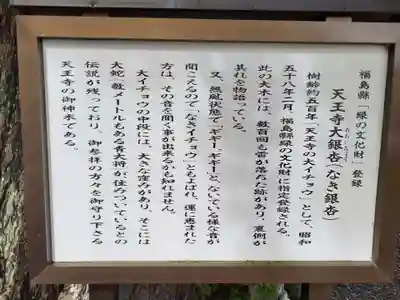 福島縣「緑の文化財」登録
天王寺大銀杏(なき銀杏)
樹齢約五百年「天王寺の大イチョウ」として昭和
五十八年二月 福島縣緑の文化財に指定登録される。
此の大木には、数百回も雷が落ちた跡があり、裏側が
其れを物語っている。
又、無風状態で「ギギー、ギギー」と、ないている様な音が
聞こえるので「なきイチョウ」ともよばれ、運に恵まれた
方は、その音を聞く事が出来るかも知れません。
大イチョウの中段には、大きな窪みがあり、そこには
大蛇(数メートルもある青大将)が住みついているとの
伝説が残っており、御参拝の方々を御守り下さる
天王寺の御神木である。